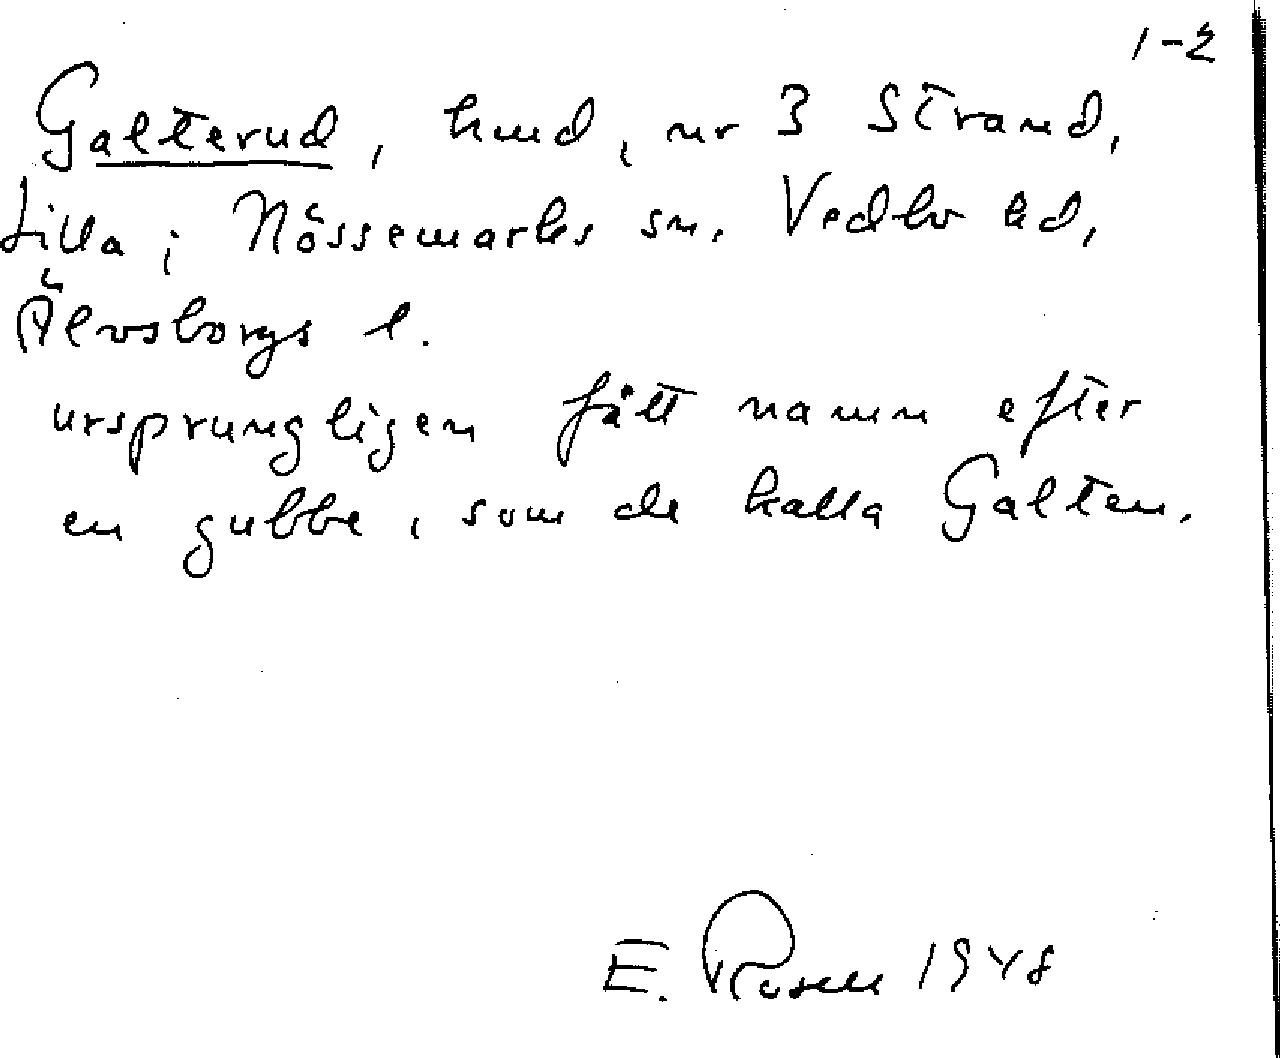 1-2
Galterud, hmd, nr 3 Strand,
Lilla; Nössemarks sn. Vedbo hd,
Älvsborgs l.
ursprungligen fått namn efter
en gubbe, som de kalla Galten.
E. Rosell 1948